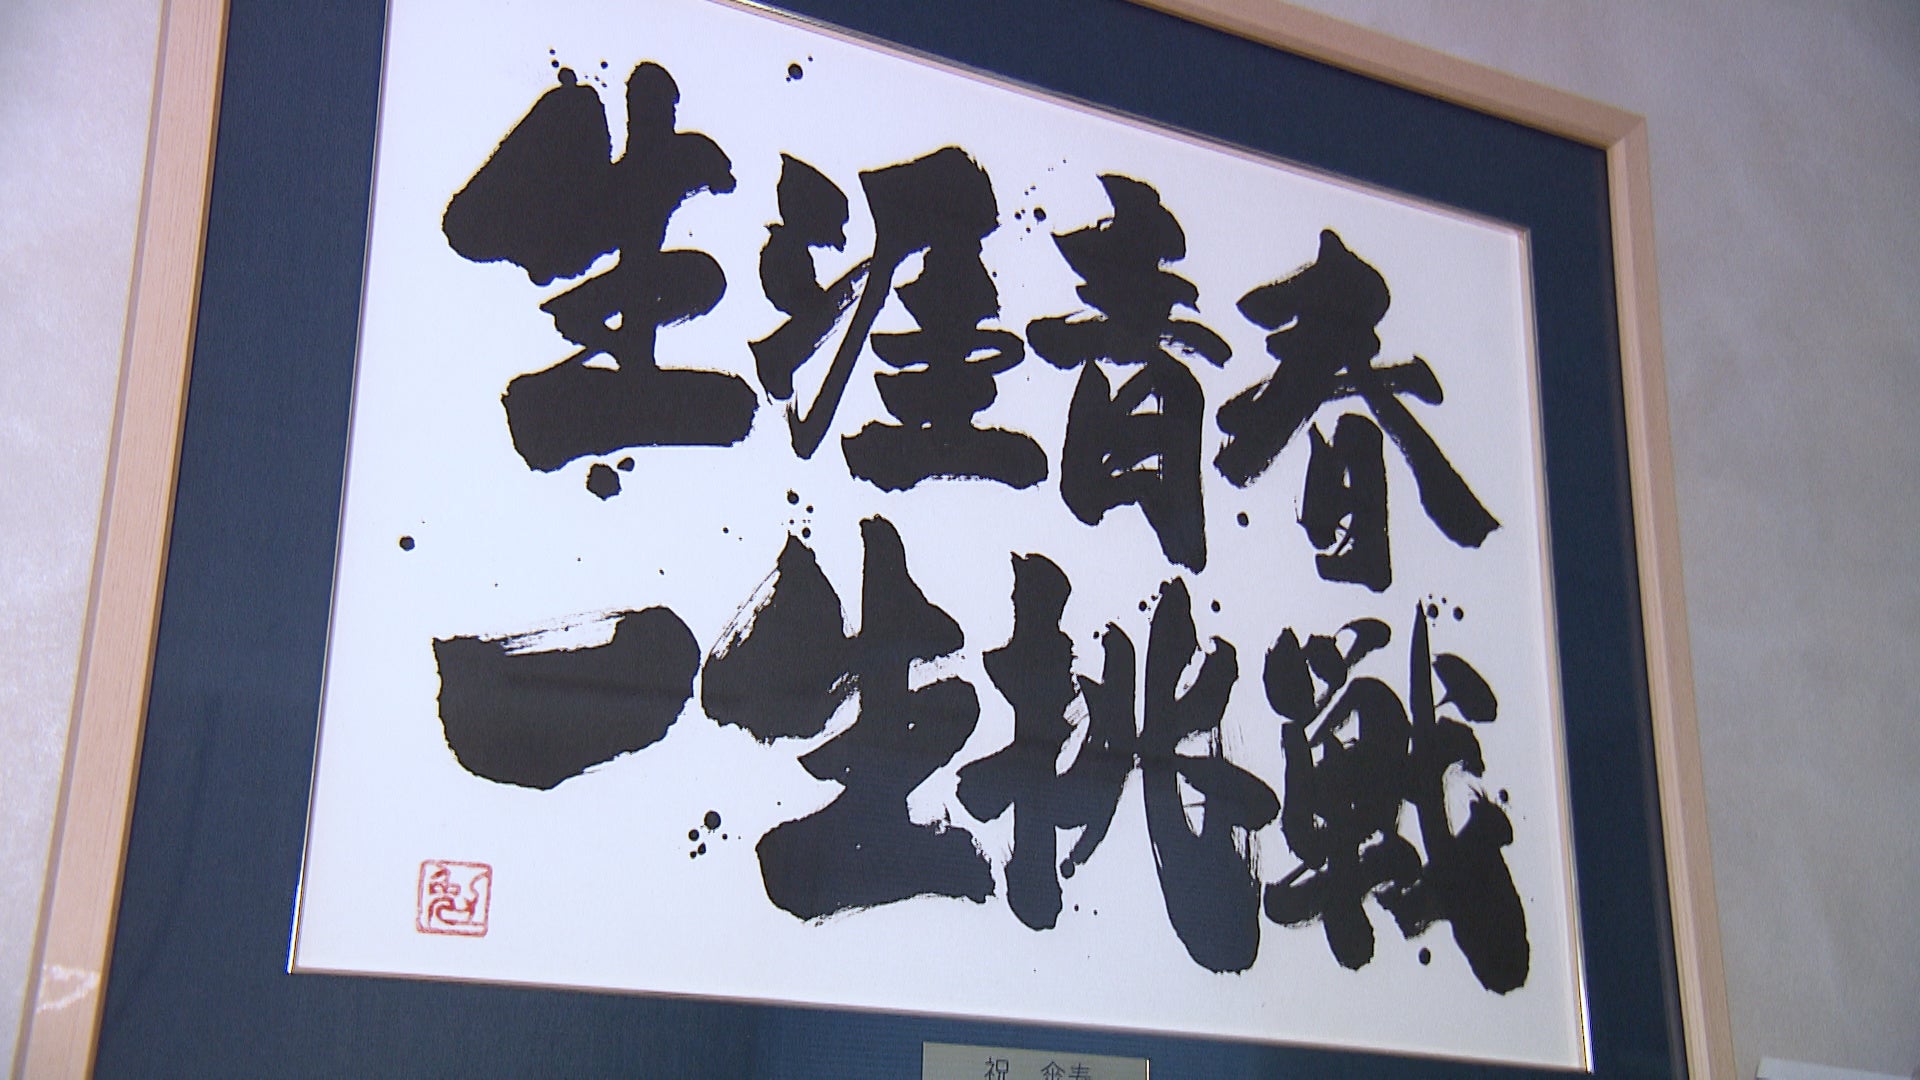 生涯青春
一生挑戦
祝 傘寿